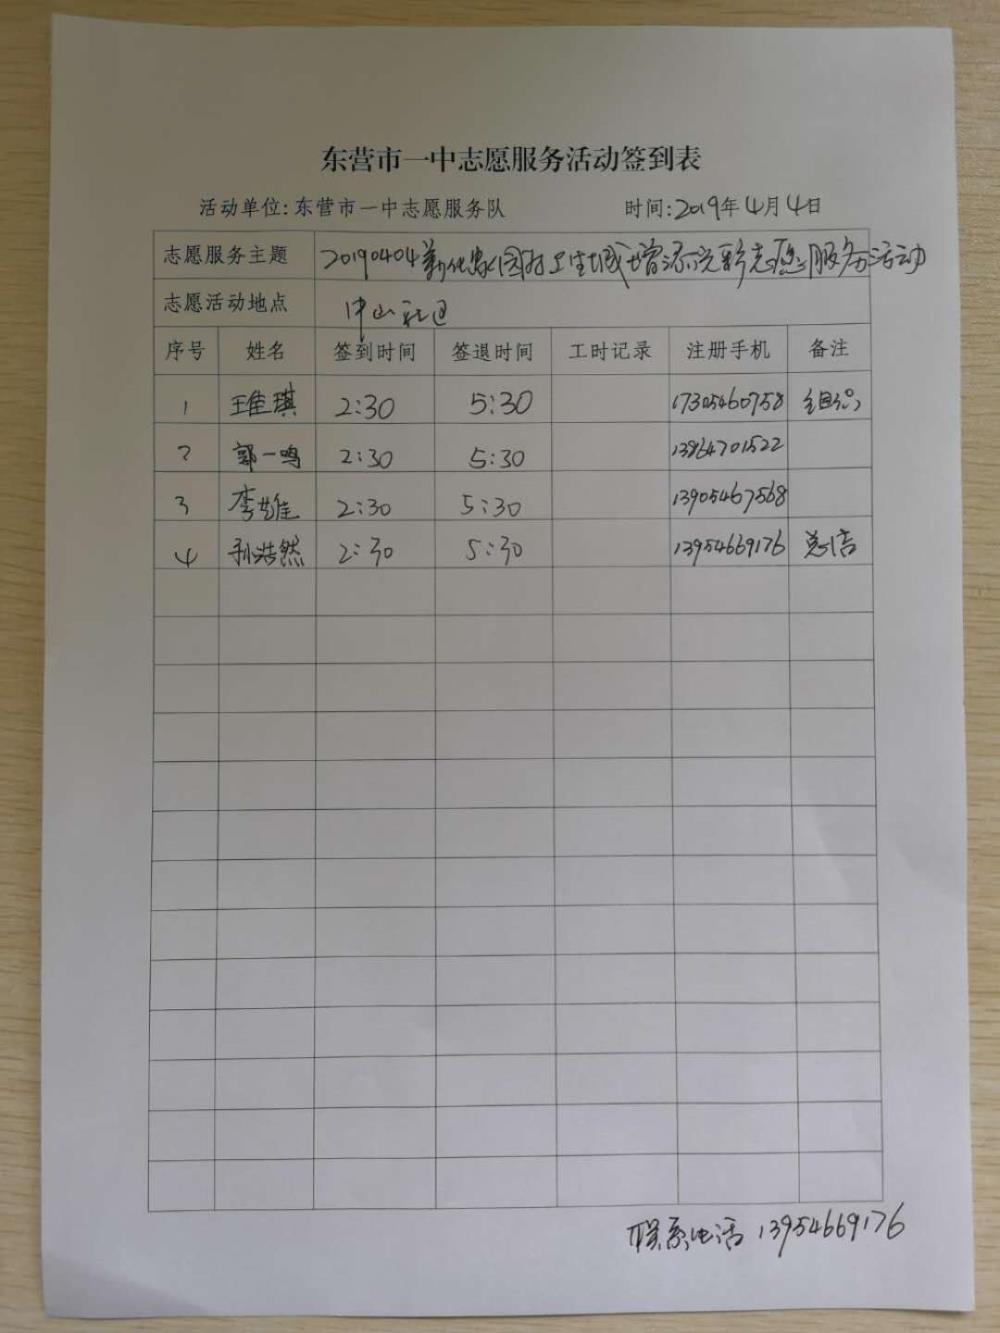 东营市一中志愿服务活动签到表
活动单位:东营市一中志愿服务队 时间:2019年4月4日
志愿服务主题 20190404美化家园为卫生城增添光彩志愿服务活动
志愿活动地点 中山社区
序号 姓名 签到时间 签退时间 工时记录 注册手机 备注
1 王佳琪 2:30 5:30 17305460758 组织
2 郭一鸣 2:30 5:30 13864701522
3 李雄 2:30 5:30 13905467568
4 孙浩然 2:30 5:30 13954669176 总结
联系电话 13954669176